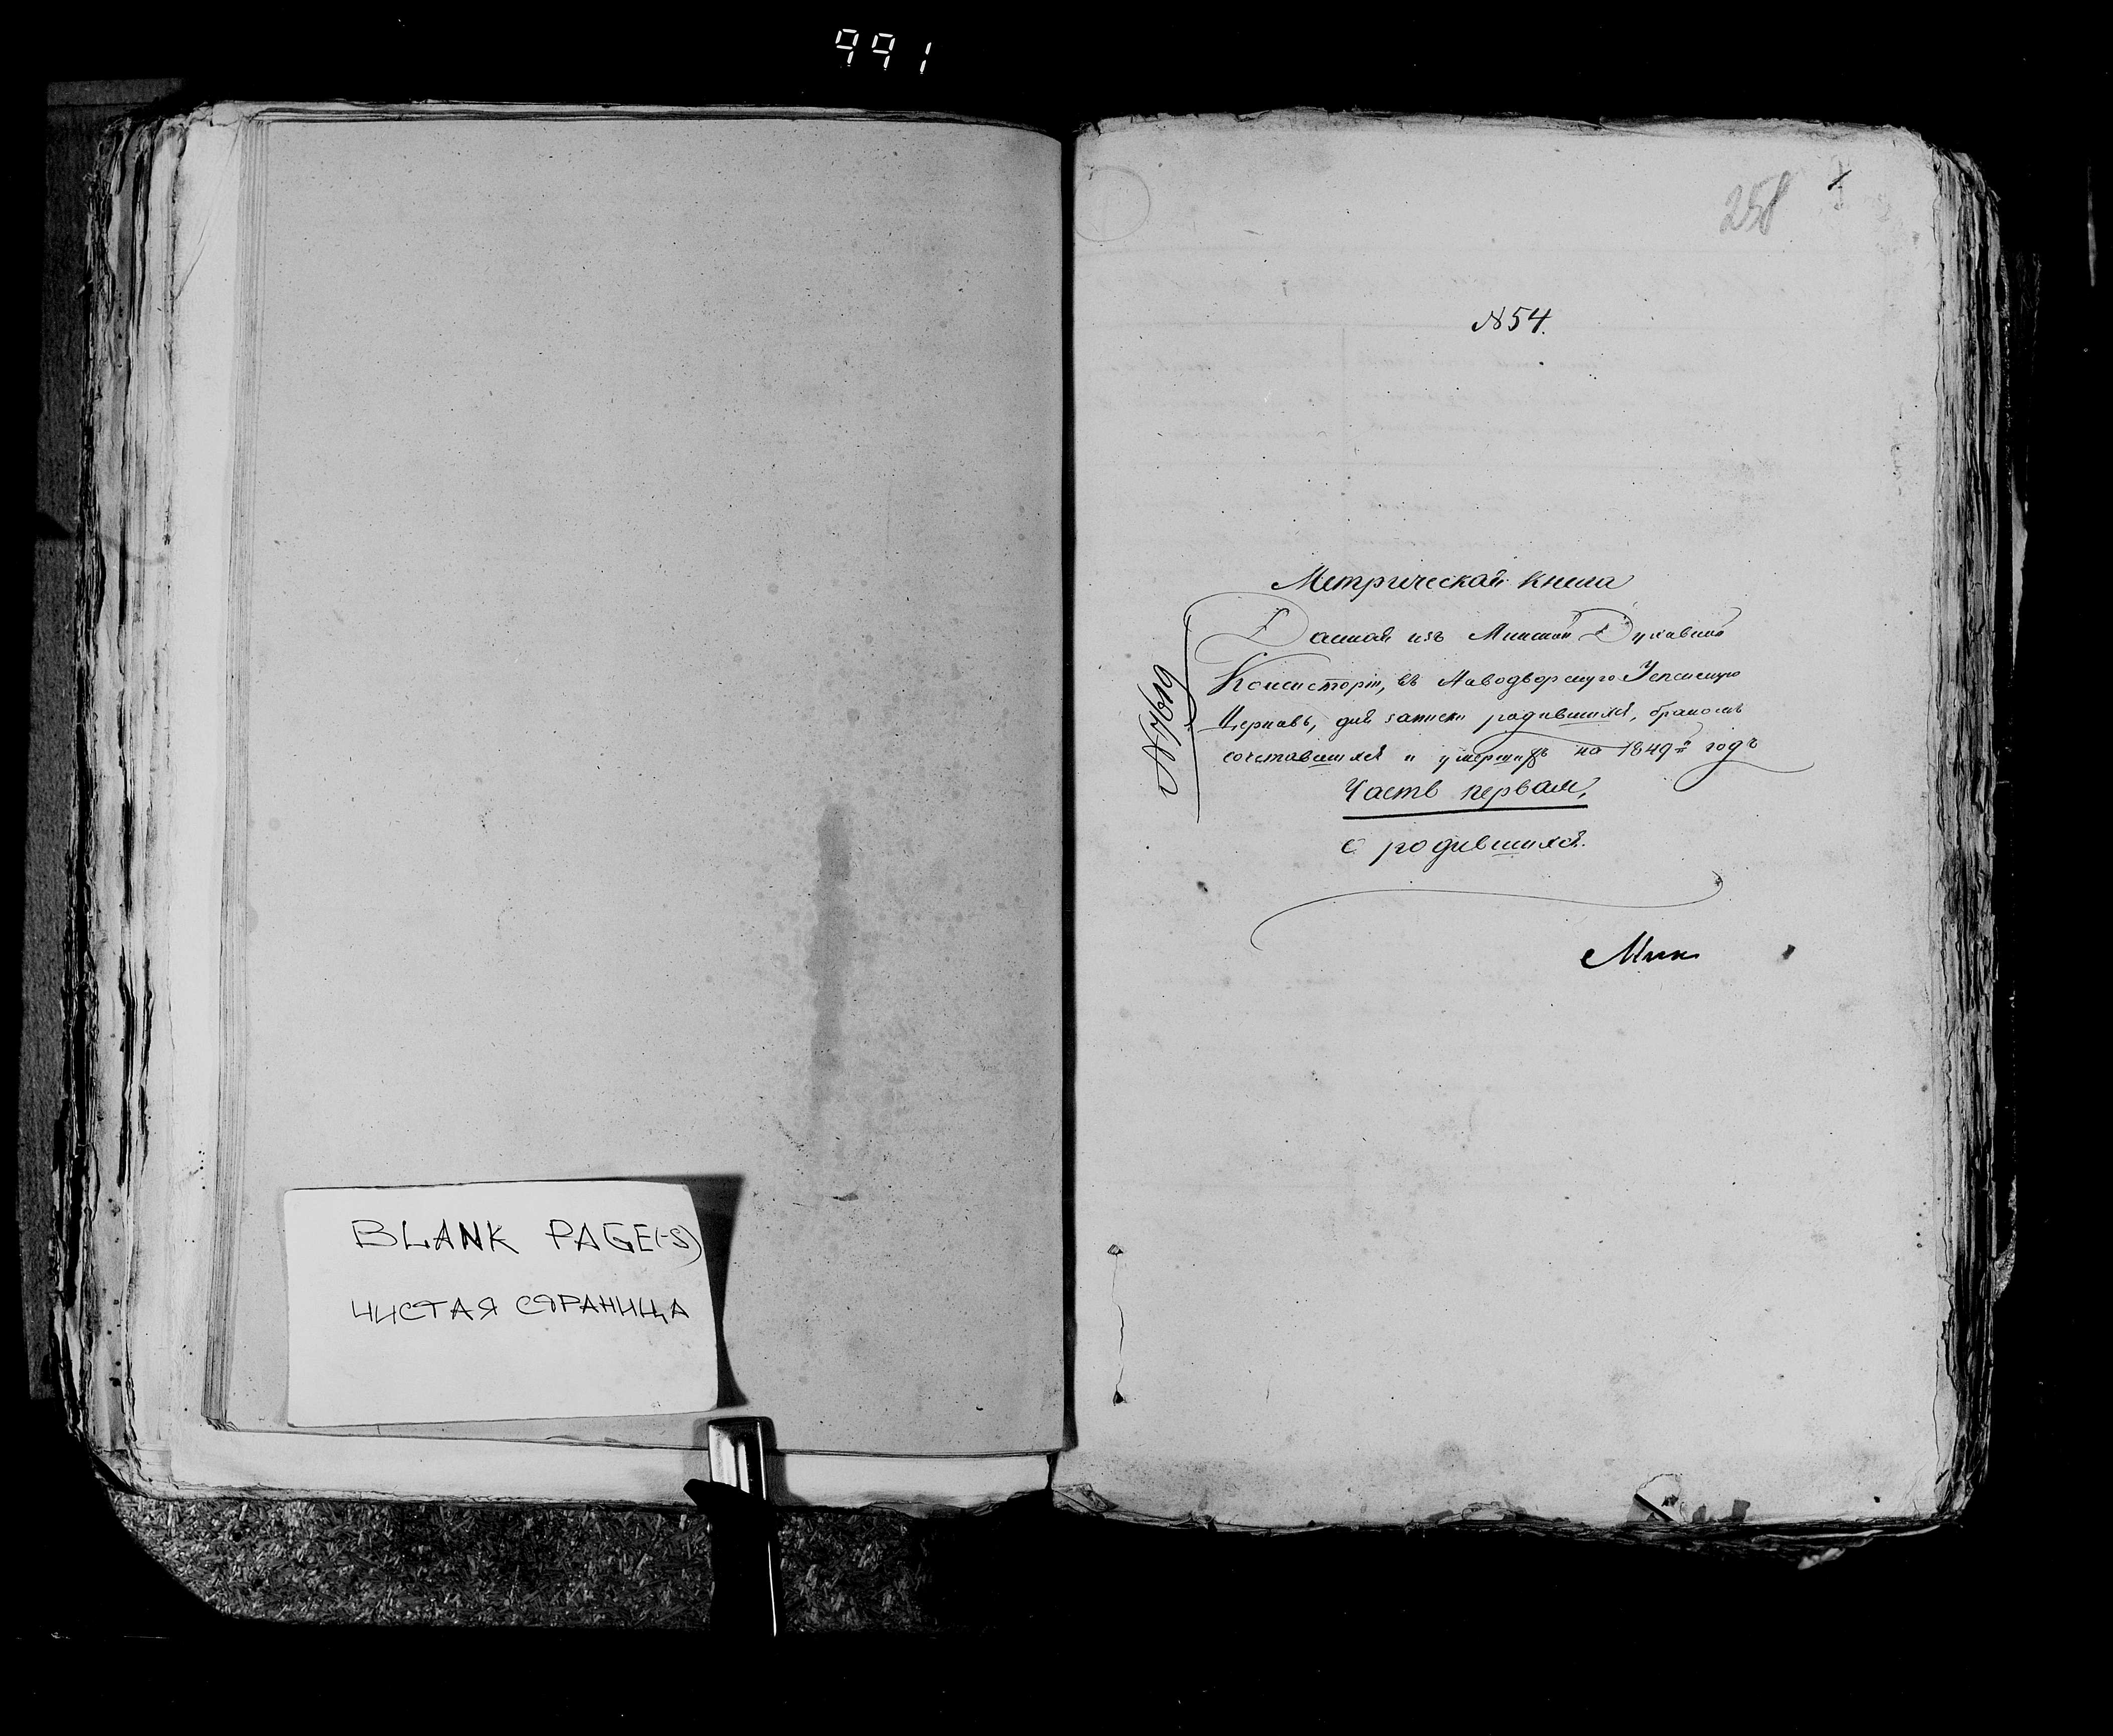 991
BLANK PAGE(-S)
ЧИСТАЯ СТРАНИЦА
258
№ 54.
Метрическая книга
Данная изъ Минской Духовной
Консисторіи, въ Новодворскую Успенскую
Церковь, для записки родившихся, бракомъ
сочетавшихся и умершихъ на 1849й годъ
Часть первая,
О родившихся.
№ 7619
Мин